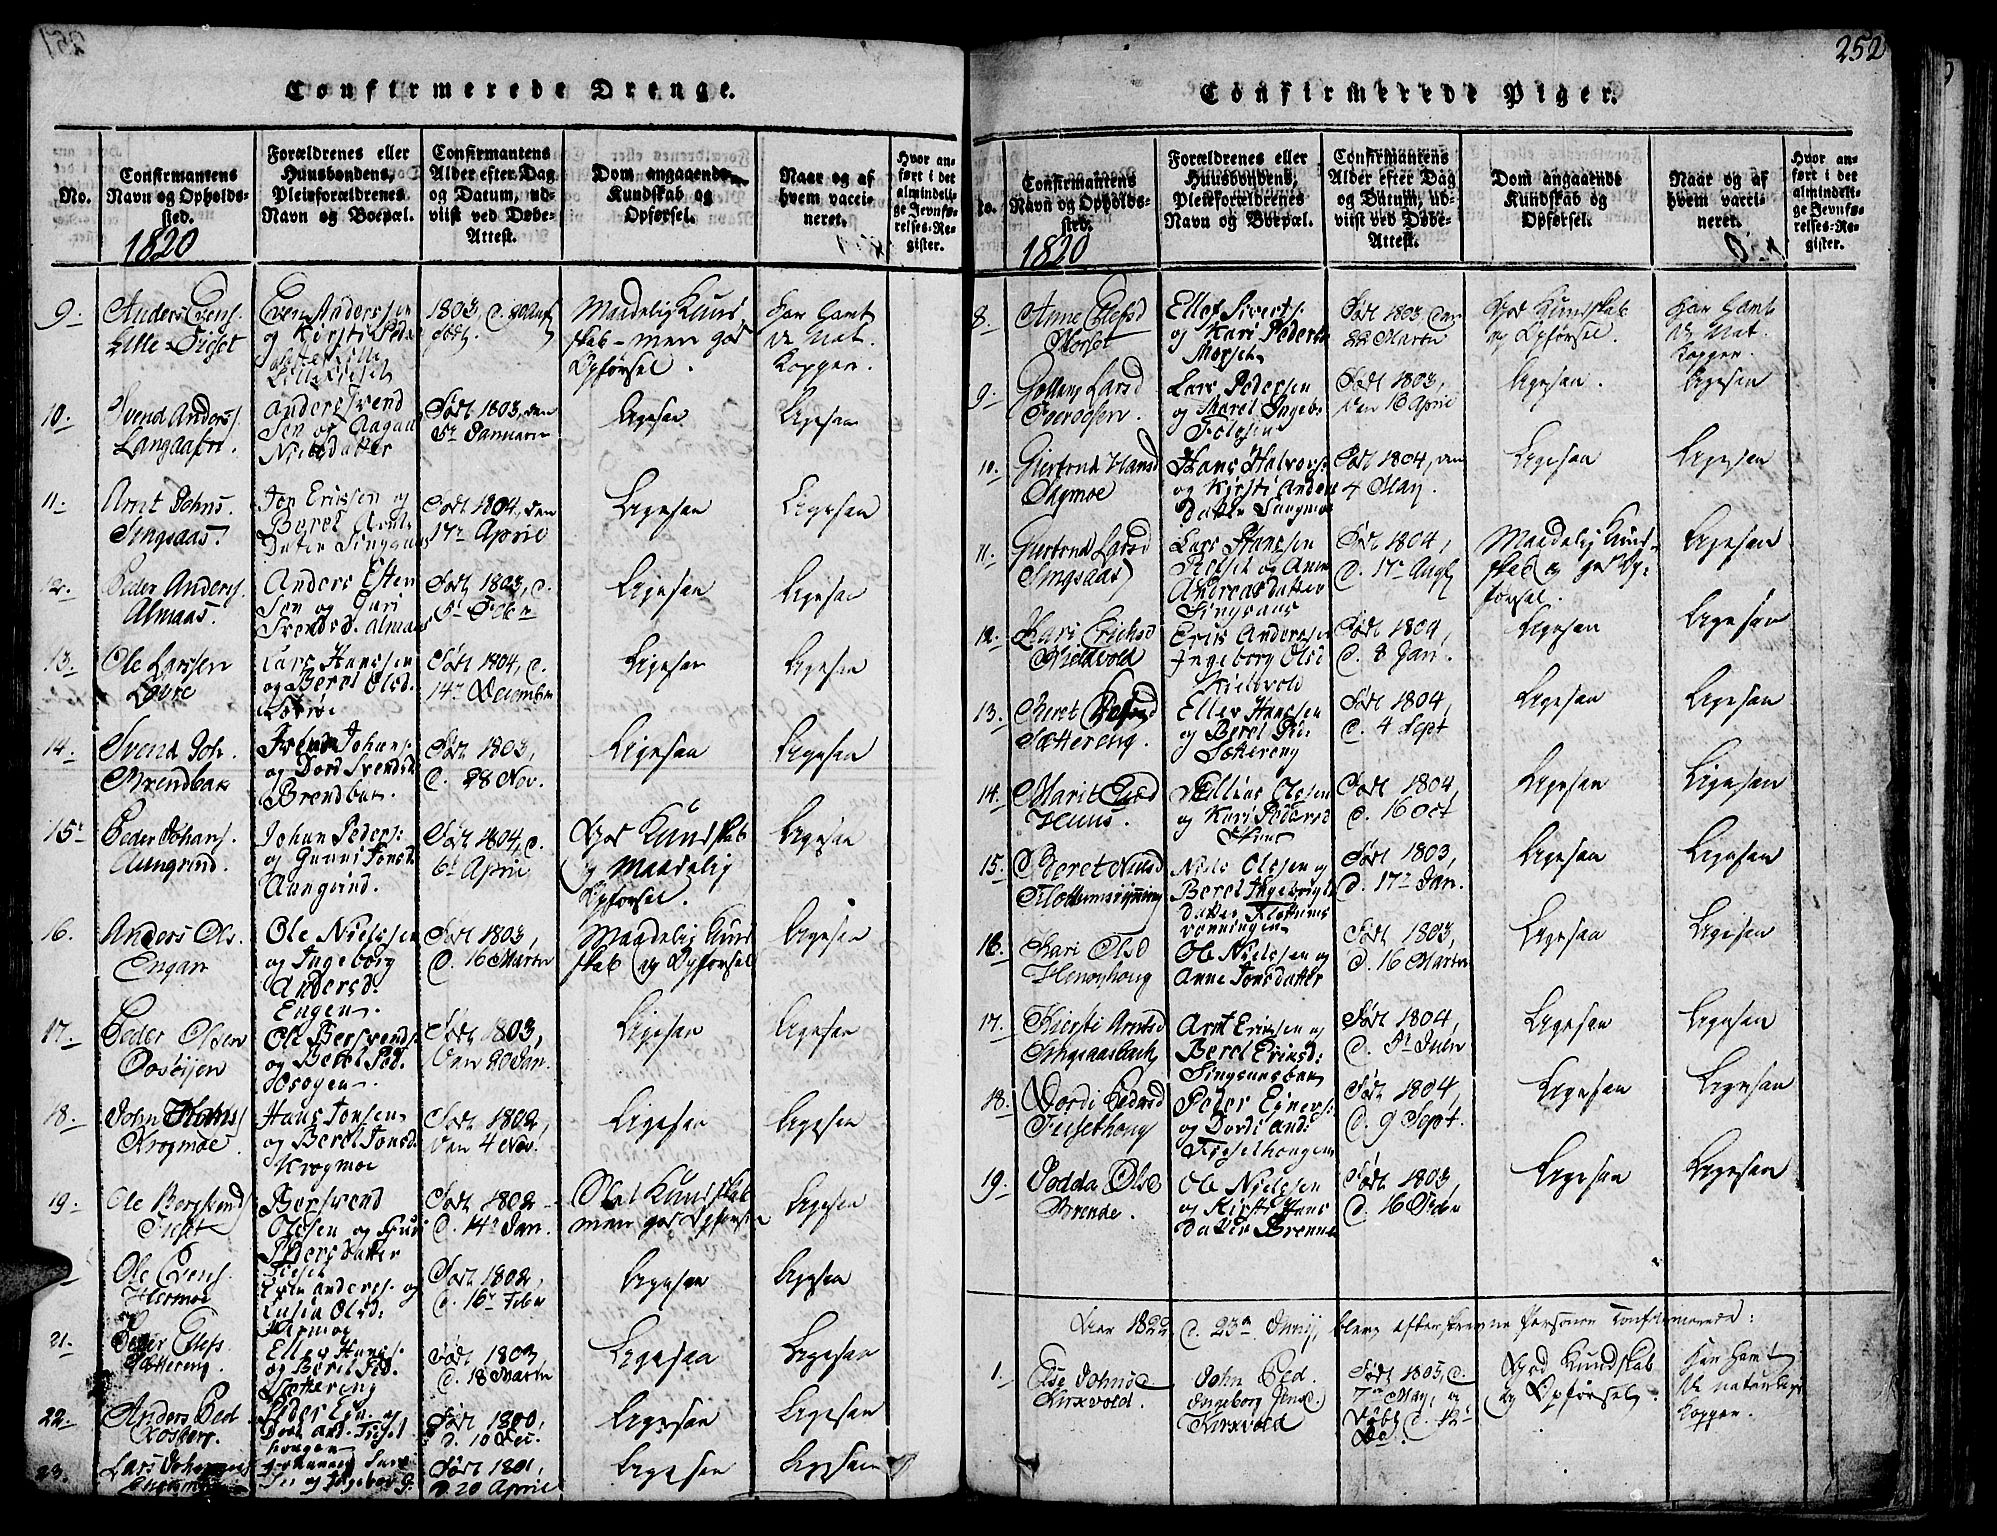 252
Confirmerede Drenge.
No.
Confirmantens
Navn og Opholds-
sted.
1820
Forældrenes eller
Huusbondens,
Pleieforældrenes
Navn og Boepæl.
Confirmantens
Alder efter Dag
og Datum, ud-
viist ved Døbe-
Attest.
Dom angaaende
Kundskab og
Opførsel.
Naar og af
hvem vacci-
neret.
Hvor an-
ført i det
almindeli-
ge Jevnfø-
relses-Re-
gister.
9.
Anders Evens.
Lille-Digset
Even Anderssen
og Kirsti Peds
1803, d.
født.
Maadelig Kund
skab - men god
Opførsel.
har havt
de Nat.
Kopper.
10.
Svend Anders.
Anders Svend
Sen og Aagaa
Nielsdatter
Født 1803, den
5te Januarii
Ligesaa
Ligesaa
11.
Arnt Johns.
Singsaas.
Jon Ericksen og
Beret Arnts
Datter Singsaas
Født 1804, den
17de Aprile
Ligesaa
Ligesaa
12.
Peder Anders.
Almaas.
Anders Esten
Sen og Guri
Svendsd. Almaas
Født 1803, d.
5te Febr
Ligesaa
Ligesaa
13.
Ole Larssen
Lars Hanssen
og Beret Olsd.
Født 1804, d.
14de December
Ligesaa
Ligesaa
14.
Svend Joh.
Brendbak
Svend Johans.
og Dord Svendsd
Brendbak.
Født 1803,
d. 28 Nov.
Ligesaa
Ligesaa
15.
Peder Johans.
Aungrind.
Johan Peders.
og Gunni Jonsd.
Aungrind.
Født 1804, d.
6te April
God Kundskab
og Maadelig
Opførsel.
Ligesaa
16.
Anders Ols.
Engan
Ole Nielssen
og Ingeborg
Andersd.
Engen.
Født 1803,
d. 16 Martii
Maadelig Kund
skab og Opførsel
Ligesaa
17.
Peder Olsen
Ole Bersvends.
og Beret Ped.
Født 1803,
den 20 Jan.
Ligesaa
Ligesaa
18.
John Hans.
Krogmoe.
Hans Jonsen
og Beret Jonsd.
Krogmoe
Født 1802,
den 4 Nov.
Ligesaa
Ligesaa
19.
Ole Bersvend.
Bersvend
Olesen og Guri
Pedersdatter
Født 1802
d. 14de Jan.
Slet Kundskab
men god Opførsel
Ligesaa
Ole Evens.
Hermoe
Even Anders. og
Olsd.
Født 1802,
d. 16de Febr
Ligesaa
Ligesaa
21.
Peder Ellefs.
Sættereng.
Ellev Hans.
og Beret Ped.
Sættereng
Født 1803
d. 18 Martii
Ligesaa
Ligesaa
22.
Anders Ped
Peder Ein. og
Født 1800,
d. 10 Dec.
Ligesaa
Ligesaa
23.
Lars Johannes
Johannes Lars
Sen og Ingebor
Født 1801,
d. 20 Aprile
Ligesaa
Ligesaa
252
Confirmerede Piger.
No.
Confirmantens
Navn og Opholds-
sted.
1820
Forældrenes eller
Huusbondens,
Pleieforældrenes
Navn og Boepæl.
Confirmantens
Alder efter Dag
og Datum, ud-
viist ved Døbe-
Attest.
Dom angaaende
Kundskab og
Opførsel.
Naar og af
hvem vacci-
neret.
Hvor an-
ført i det
almindeli-
ge Jevnfø-
relses-Re-
gister.
8.
Anne Ellefsd
Morset
Ellef Siverts.
og Kari Peders
Morset
Født 1803, den
22 Martii
God Kundskab
og Opførsel.
har havt
de Nat.
Kopper.
9.
Larsd
Lars Pedersen
og Maret Ingebr
Født 1803,
den 16 April
Ligesaa.
Ligesaa
10.
Giertrud Hansd
Sagmoe
Hans Halvors.
og Kirsti Anders
datter
Født 1804, den
4 Maj.
Ligesaa
Ligesaa
11.
Giertrud Larsd
Singsaas
Lars Hanssen
og Ane
Andreasdatter
Singsaas
Født 1804,
d. 17de Aug.
Maadelig Kund-
skab og god Op-
førsel.
Ligesaa
12.
Kari Ericksd
Kieldvold
Erik Anderssen
Ingeborg Olsd
Kieldvold
Født 1804,
d. 8 Jan.
Ligesaa
Ligesaa
13.
Beret
Sættereng.
Ellev Hanssen
og Beret Pe.
Sættereng
Født 1804
d. 4 Sept
Ligesaa
Ligesaa
14.
Marit
Huus.
Olesen
og Kari Pedersd
Huus
Født 1804
d. 16 Oct
Ligesaa
Ligesaa
15.
Beret Nielsd
Niels Olesen og
Beret Ingebrigt
datter Flottums
rønningen
Født 1803,
d. 17de Jan.
Ligesaa
Ligesaa
16.
Kari Olsd
Ole Nielsen og
Anne Jonsdatter
Født 1803,
d. 16 Martii
Ligesaa
Ligesaa
17.
Kiersti Arntsd
Singsaasbak
Arnt Ericksen og
Beret Eriksd:
Singsaasbak
Født 1804,
d. 5te Julii
Ligesaa
Ligesaa
18.
Dordi Pedersd
Peder Einers.
og Dordi And:
Født 1804,
d. 9 Sept.
Ligesaa
Ligesaa
19.
Olsd
Brende.
Ole Nielsen
og Kirsti Hans
datter Brenne
Født 1803,
d. 16 Febr
Ligesaa
Ligesaa
Aar 1822 d. 23de Junij, blev efterskrevne Personer Confirmerede:
1.
Else Johnsd.
Kirkvold.
John Ped.
Ingeborg Jensd.
Kirkvold
Født 1805, d.
7de May, og
Døbt d. 12te
Do.
God Kundskab
og Opførsel.
Har havt
de naturlige
Kopper.